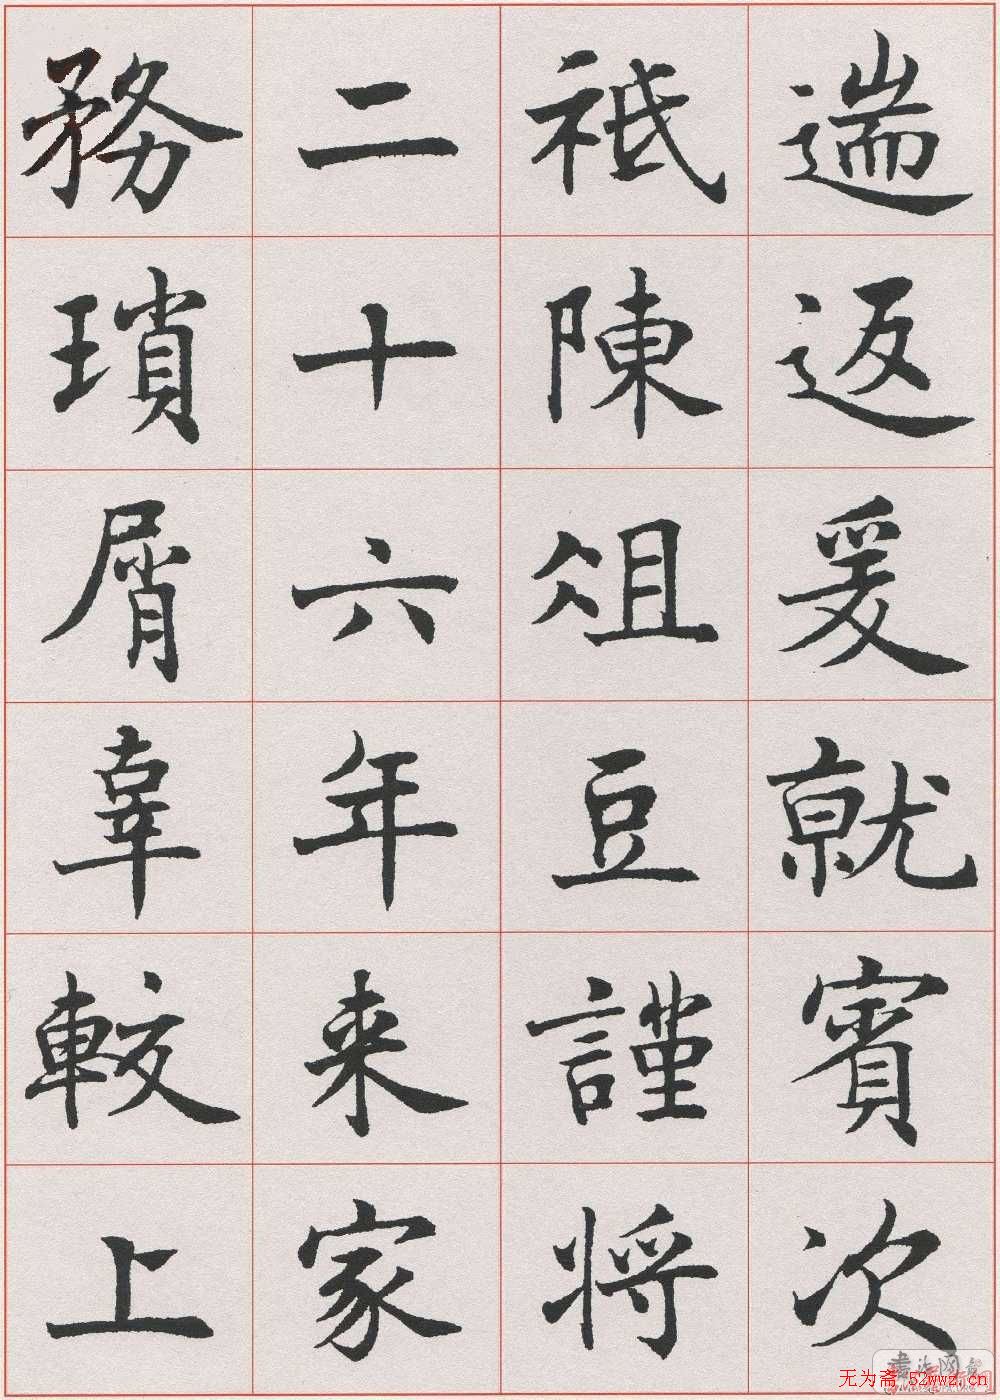 遄返爰就賓次
祗陳俎豆謹将
二十六年来家
務瑣屑辜較上
无为斋 52wwz.cn